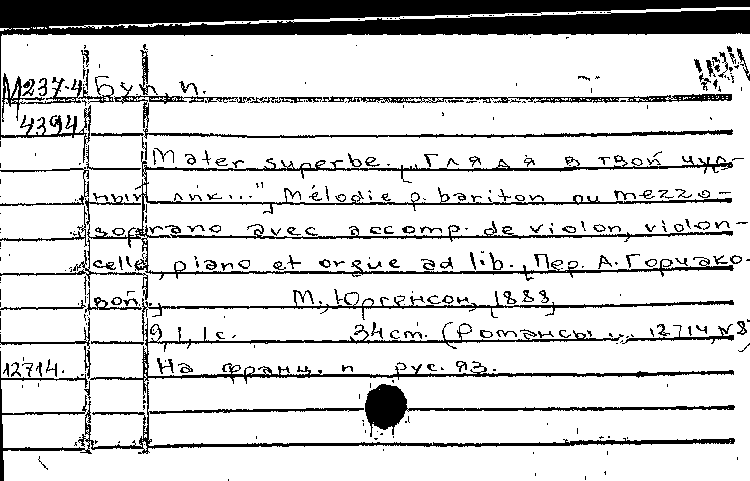 М237-4 Бук, п.
4394
Mater superbe. „Глядя в твой чуд-
ный лик..." Mélodie p. bariton ou mezzo-
soprano avec accomp. de violon, violon-
celle, piano et orgue ad lib. Пер. А. Горчако-
вой. М., Юргенсон, [1888]
9, 1, 1 с. 34 cm. (Романсы ... 12714, №8)
12714. На франц. и рус. яз.